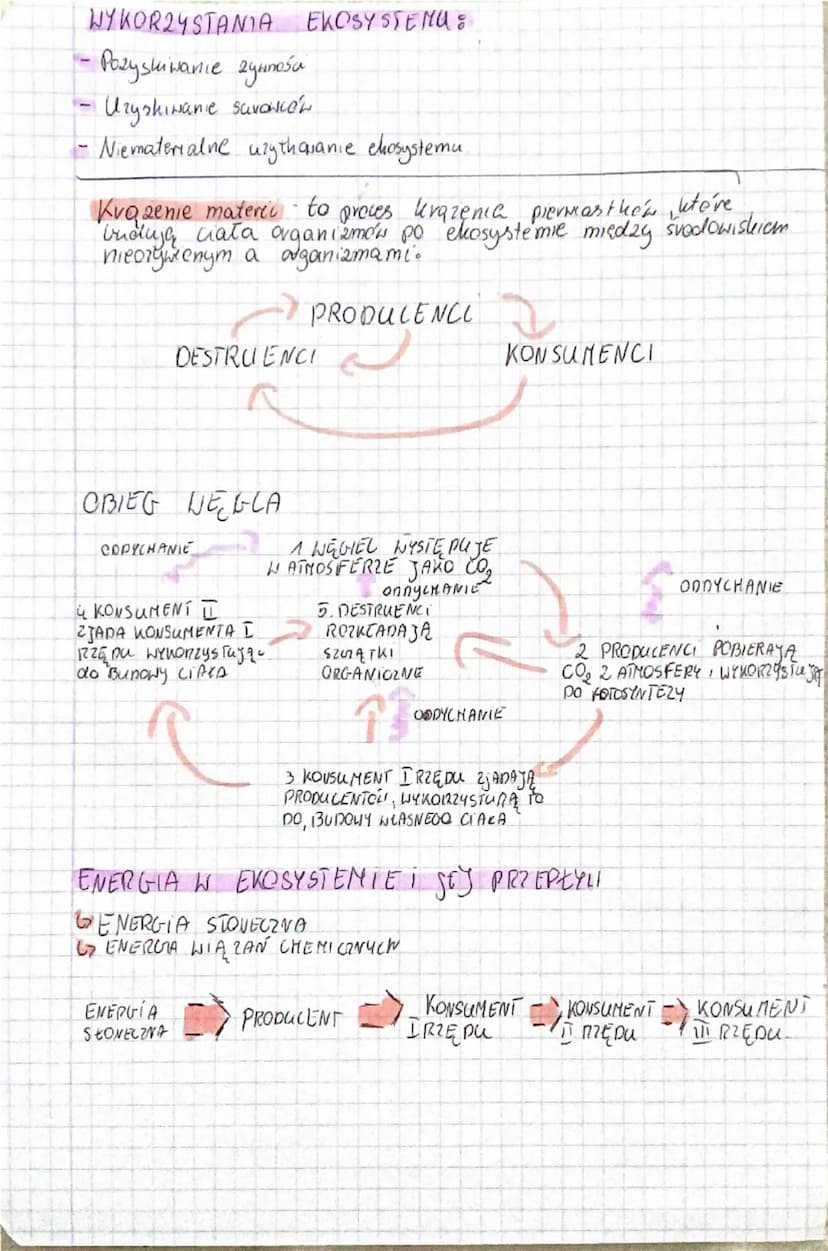 WYKORZYSTANIA EKOSYSTEMU:
- Pozyskiwanie żywności
- Uzyskiwanie surowców
- Niematerialne użytkowanie ekosystemu
Krążenie materii - to proces krążenia pierwiastków, które
budują ciała organizmów po ekosystemie między środowiskiem
nieożywionym a organizmami.
PRODUCENCI
DESTRUENCI
KONSUMENCI
OBIEG WĘGLA
ODDYCHANIE
1 WĘGIEL WYSTĘPUJE
W ATMOSFERZE JAKO CO2
ODDYCHANIE
ODDYCHANIE
4 KONSUMENT II
ZJADA KONSUMENTA I
RZĘDU WYKORZYSTUJĄC
do BUDOWY CIAŁA
5. DESTRUENCI
ROZKŁADAJĄ
SZCZĄTKI
ORGANICZNE
2 PRODUCENCI POBIERAJĄ
CO2 Z ATMOSFERY I WYKORZYSTUJĄ
DO FOTOSYNTEZY
ODDYCHANIE
3 KONSUMENT I RZĘDU ZJADAJĄ
PRODUCENTÓW, WYKORZYSTUJĄ TO
DO, BUDOWY WŁASNEGO CIAŁA
ENERGIA W EKOSYSTEMIE I JEJ PRZEPŁYW
↳ ENERGIA SŁONECZNA
↳ ENERGIA WIĄZAŃ CHEMICZNYCH
ENERGIA
SŁONECZNA
PRODUCENT
KONSUMENT
I RZĘDU
KONSUMENT
II RZĘDU
KONSUMENT
III RZĘDU